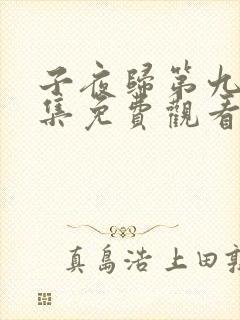 子夜歸第九
集免費觀看
真島浩 上田敦